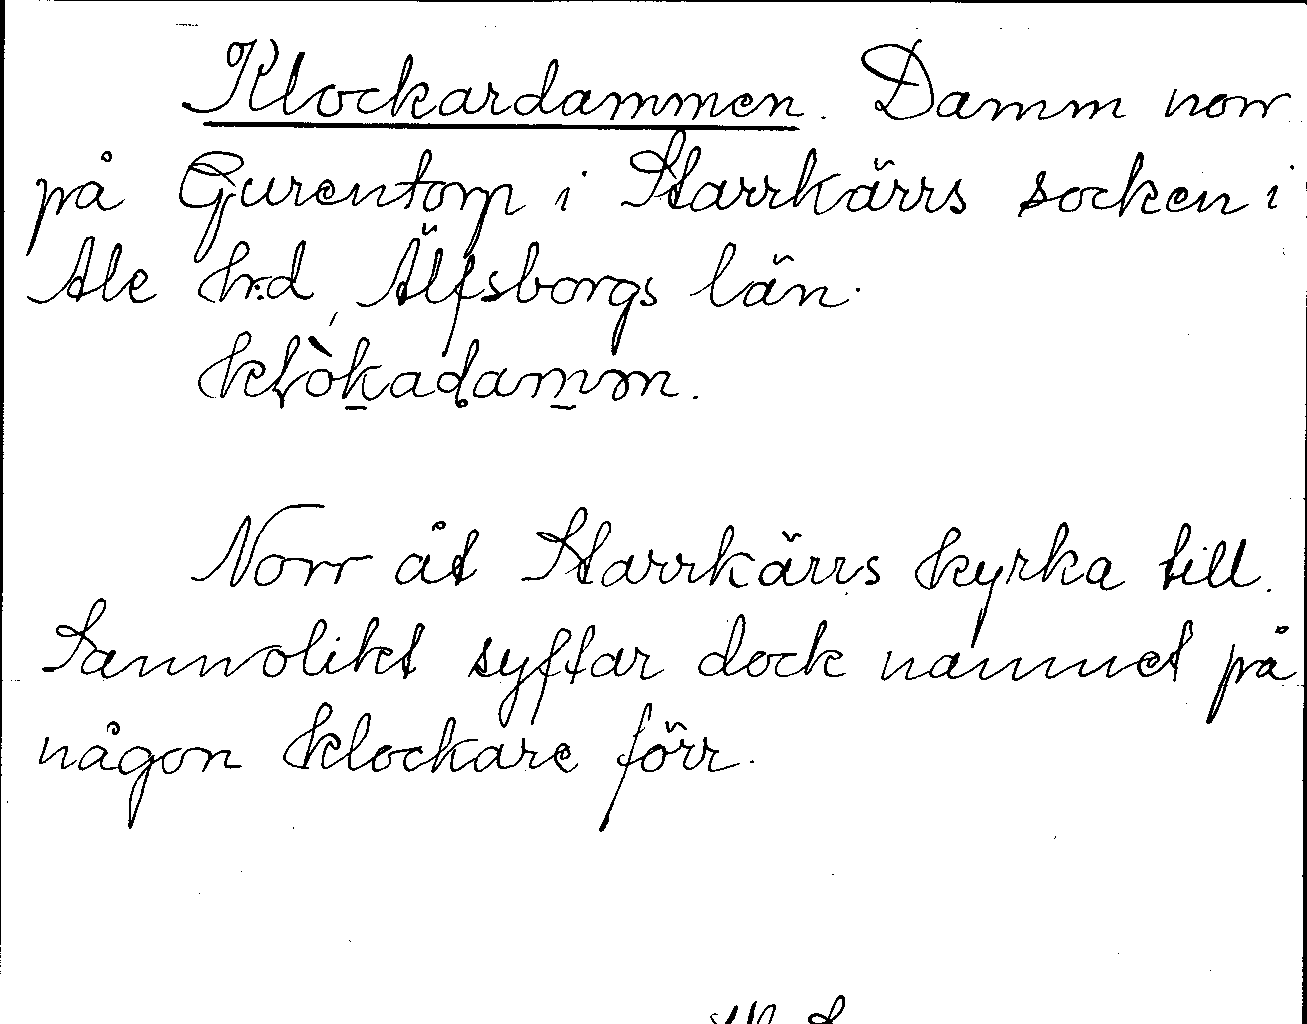 Klockardammen. Damm norr
på Gurentorp i Starrkärrs socken i
Ale hrd, Älfsborgs län.
klòkadamm.
Norr åt Starrkärrs kyrka till.
Sannolikt syftar dock namnet på
någon klockare förr.